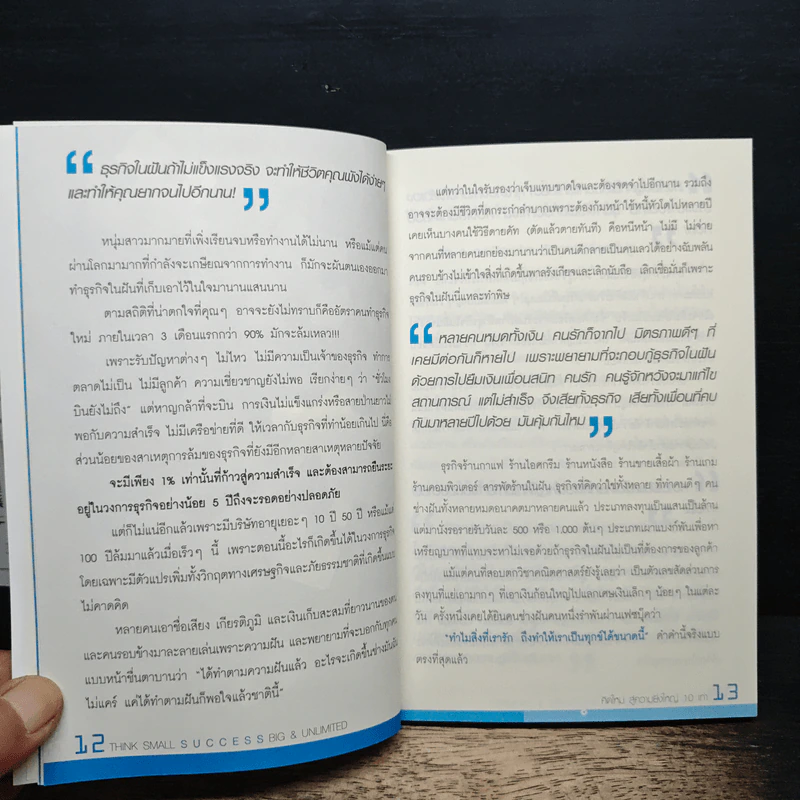 “ ธุรกิจในฝันถ้าไม่แข็งแรงจริง จะทำให้ชีวิตคุณพังได้ง่ายๆ
และทำให้คุณยากจนไปอีกนาน! ”
หนุ่มสาวมากมายที่เพิ่งเรียนจบหรือทำงานได้ไม่นาน หรือแม้แต่คน
ผ่านโลกมามากที่กำลังจะเกษียณจากการทำงาน ก็มักจะผันตนเองออกมา
ทำธุรกิจในฝันที่เก็บเอาไว้ในใจมานานแสนนาน
ตามสถิติที่น่าตกใจที่คุณๆ อาจจะยังไม่ทราบก็คืออัตราคนทำธุรกิจ
ใหม่ ภายในเวลา 3 เดือนแรกกว่า 90% มักจะล้มเหลว!!!
เพราะรับปัญหาต่างๆ ไม่ไหว ไม่มีความเป็นเจ้าของธุรกิจ ทำการ
ตลาดไม่เป็น ไม่มีลูกค้า ความเชี่ยวชาญยังไม่พอ เรียกง่ายๆ ว่า “ชั่วโมง
บินยังไม่ถึง” แต่หาญกล้าที่จะบิน การเงินไม่แข็งแกร่งหรือสายป่านยาวไม่
พอกับความสำเร็จ ไม่มีเครือข่ายที่ดี ให้เวลากับธุรกิจที่ทำน้อยเกินไป นี่คือ
ส่วนน้อยของสาเหตุการล้มของธุรกิจที่ยังมีอีกหลายสาเหตุหลายปัจจัย
จะมีเพียง 1% เท่านั้นที่ก้าวสู่ความสำเร็จ และต้องสามารถยืนระยะ
อยู่ในวงการธุรกิจอย่างน้อย 5 ปีถึงจะรอดอย่างปลอดภัย
แต่ก็ไม่แน่อีกแล้วเพราะมีบริษัทอายุเยอะๆ 10 ปี 50 ปี หรือแม้แต่
100 ปีล้มมาแล้วเมื่อเร็วๆ นี้ เพราะตอนนี้อะไรก็เกิดขึ้นได้ในวงการธุรกิจ
โดยเฉพาะมีตัวแปรเพิ่มทั้งวิกฤตทางเศรษฐกิจและภัยธรรมชาติที่เกิดขึ้นแบบ
ไม่คาดคิด
หลายคนเอาชื่อเสียง เกียรติภูมิ และเงินเก็บสะสมที่ยาวนานของตน
และคนรอบข้างมาละลายเล่นเพราะความฝัน และพยายามที่จะบอกกับทุกคน
แบบหน้าชื่นตาบานว่า “ได้ทำตามความฝันแล้ว อะไรจะเกิดขึ้นช่างมันฉัน
ไม่แคร์ แค่ได้ทำตามฝันก็พอใจแล้วชาตินี้”
12 THINK SMALL SUCCESS BIG & UNLIMITED
แต่ทว่าในใจรับรองว่าเจ็บแทบขาดใจและต้องจดจำไปอีกนาน รวมถึง
อาจจะต้องมีชีวิตที่ตกระกำลำบากเพราะต้องก้มหน้าใช้หนี้หัวโตไปหลายปี
เคยเห็นบางคนใช้วิธีตายคัท (ตัดแล้วตายทันที) คือหนีหน้า ไม่มี ไม่จ่าย
จากคนที่หลายคนยกย่องมานานว่าเป็นคนดีกลายเป็นคนเลวได้อย่างฉับพลัน
คนรอบข้างไม่เข้าใจสิ่งที่เกิดขึ้นพาลรังเกียจและเลิกนับถือ เลิกเชื่อมั่นก็เพราะ
ธุรกิจในฝันนี่แหละทำพิษ
“ หลายคนหมดทั้งเงิน คนรักก็จากไป มิตรภาพดีๆ ที่
เคยมีต่อกันก็หายไป เพราะพยายามที่จะกอบกู้ธุรกิจในฝัน
ด้วยการไปยืมเงินเพื่อนสนิท คนรัก คนรู้จักหวังจะมาแก้ไข
สถานการณ์ แต่ไม่สำเร็จ จึงเสียทั้งธุรกิจ เสียทั้งเพื่อนที่คบ
กันมาหลายปีไปด้วย มันคุ้มกันไหม ”
ธุรกิจร้านกาแฟ ร้านไอศกรีม ร้านหนังสือ ร้านขายเสื้อผ้า ร้านเกม
ร้านคอมพิวเตอร์ สารพัดร้านในฝัน ธุรกิจที่คิดว่าใช่ทั้งหลาย ที่ทำคนดีๆ คน
ช่างฝันทั้งหลายหมดอนาคตมาหลายคนแล้ว ประเภทลงทุนเป็นแสนเป็นล้าน
แต่มานั่งรอรายรับวันละ 500 หรือ 1,000 ต้นๆ ประเภทนาแบงก์พันเพื่อหา
เหรียญบาทที่แทบจะหาไม่เจอด้วยถ้าธุรกิจในฝันไม่เป็นที่ต้องการของลูกค้า
แม้แต่คนที่สอบตกวิชาคณิตศาสตร์ยังรู้เลยว่า เป็นตัวเลขสัดส่วนการ
ลงทุนที่แย่เอามากๆ ที่เอาเงินก้อนใหญ่ไปแลกเศษเงินเล็กๆ น้อยๆ ในแต่ละ
วัน ครั้งหนึ่งเคยได้ยินคนช่างฝันคนหนึ่งรำพันผ่านเฟซบุ๊คว่า
“ทำไมสิ่งที่เรารัก ถึงทำให้เราเป็นทุกข์ได้ขนาดนี้” คำคำนี้จริงแบบ
ตรงที่สุดแล้ว
คิดใหม่ สู่ความยิ่งใหญ่ 10 เท่า 13